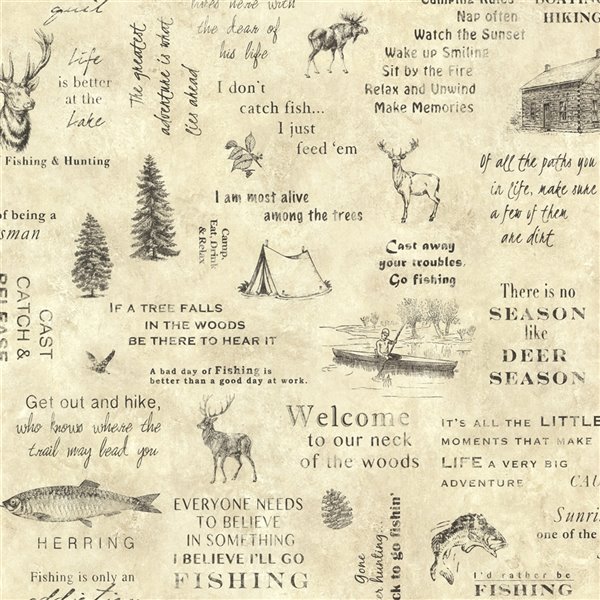 quit
lives here with
the dear of
his life
Camping Rules
Nap often
Watch the Sunset
Wake up Smiling
Sit by the Fire
Relax and Unwind
Make Memories
BOATING
HIKING
Life
is better
at the
Lake
The greatest
adventure is what
lies ahead
I don't
catch fish...
I just
feed 'em
Fishing & Hunting
Of all the paths you
in life, make sure
a few of them
are dirt
of being a
sman
I am most alive
among the trees
Camp,
Eat, Drink
& Relax
Cast away
your troubles,
Go fishing
CAST
CATCH &
RELEASE
IF A TREE FALLS
IN THE WOODS
BE THERE TO HEAR IT
There is no
SEASON
like
DEER
SEASON
A bad day of Fishing is
better than a good day at work.
Get out and hike,
who knows where the
trail may lead you
Welcome
to our neck
of the woods
IT'S ALL THE LITTLE
MOMENTS THAT MAKE
LIFE A VERY BIG
ADVENTURE
CAU
HERRING
EVERYONE NEEDS
TO BELIEVE
IN SOMETHING
I BELIEVE I'LL GO
FISHING
Gone
hunting...
ck to go fishin'
Sunris
one of the
I'd rather be
FISHING
Fishing is only an
addiction